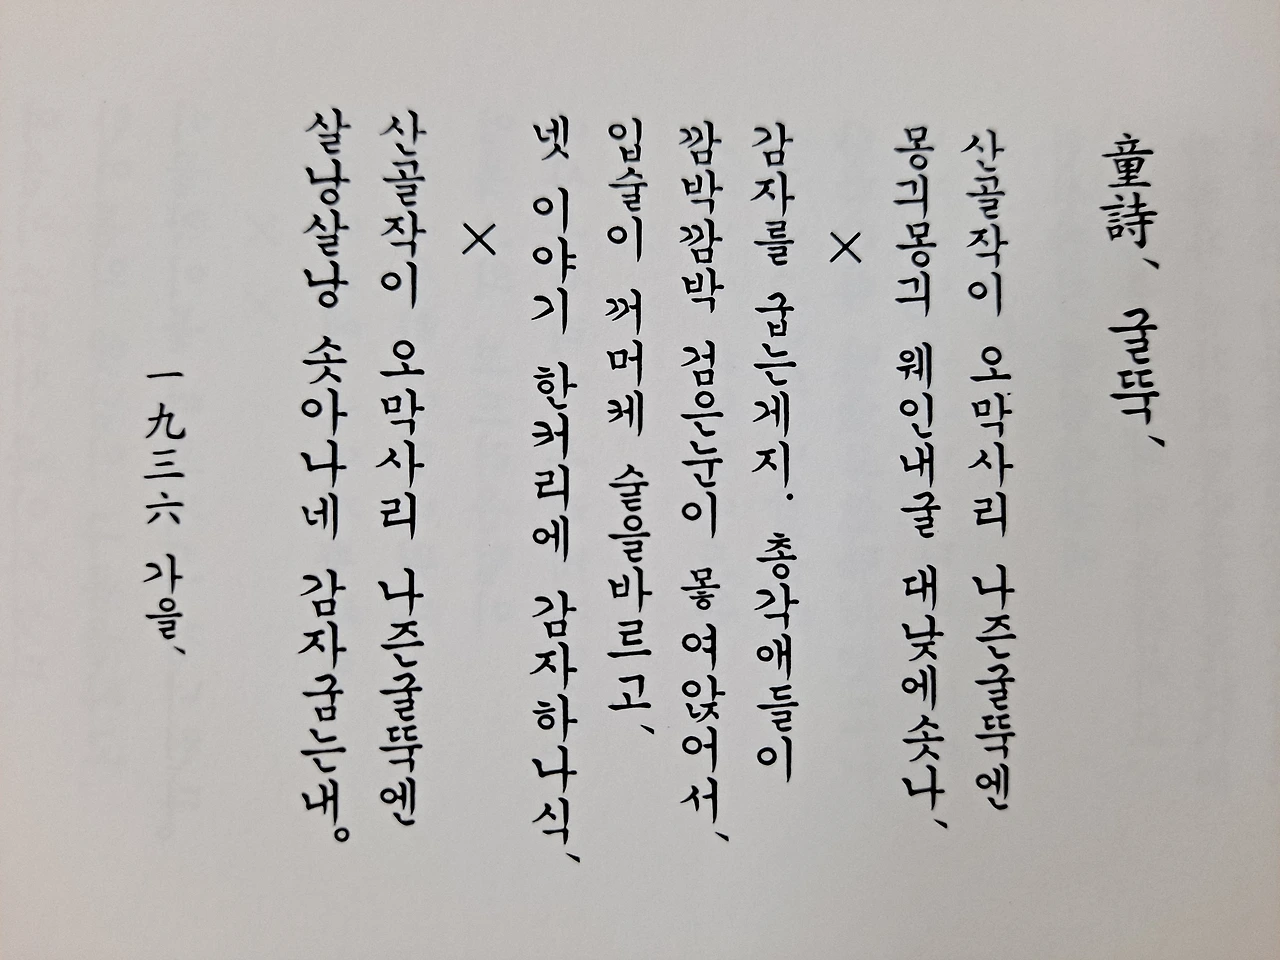 童詩、 굴뚝、
산골작이 오막사리 나즌굴뚝엔
몽긔몽긔 웨인내굴 대낮에솟나、
×
감자를 굽는게지. 총각애들이
깜박깜박 검은눈이 몽여앉어서、
입술이 꺼머케 숱을바르고、
넷 이야기 한커리에 감자하나식、
×
산골작이 오막사리 나즌굴뚝엔
살낭살낭 솟아나네 감자굽는내。
一九三六 가을、